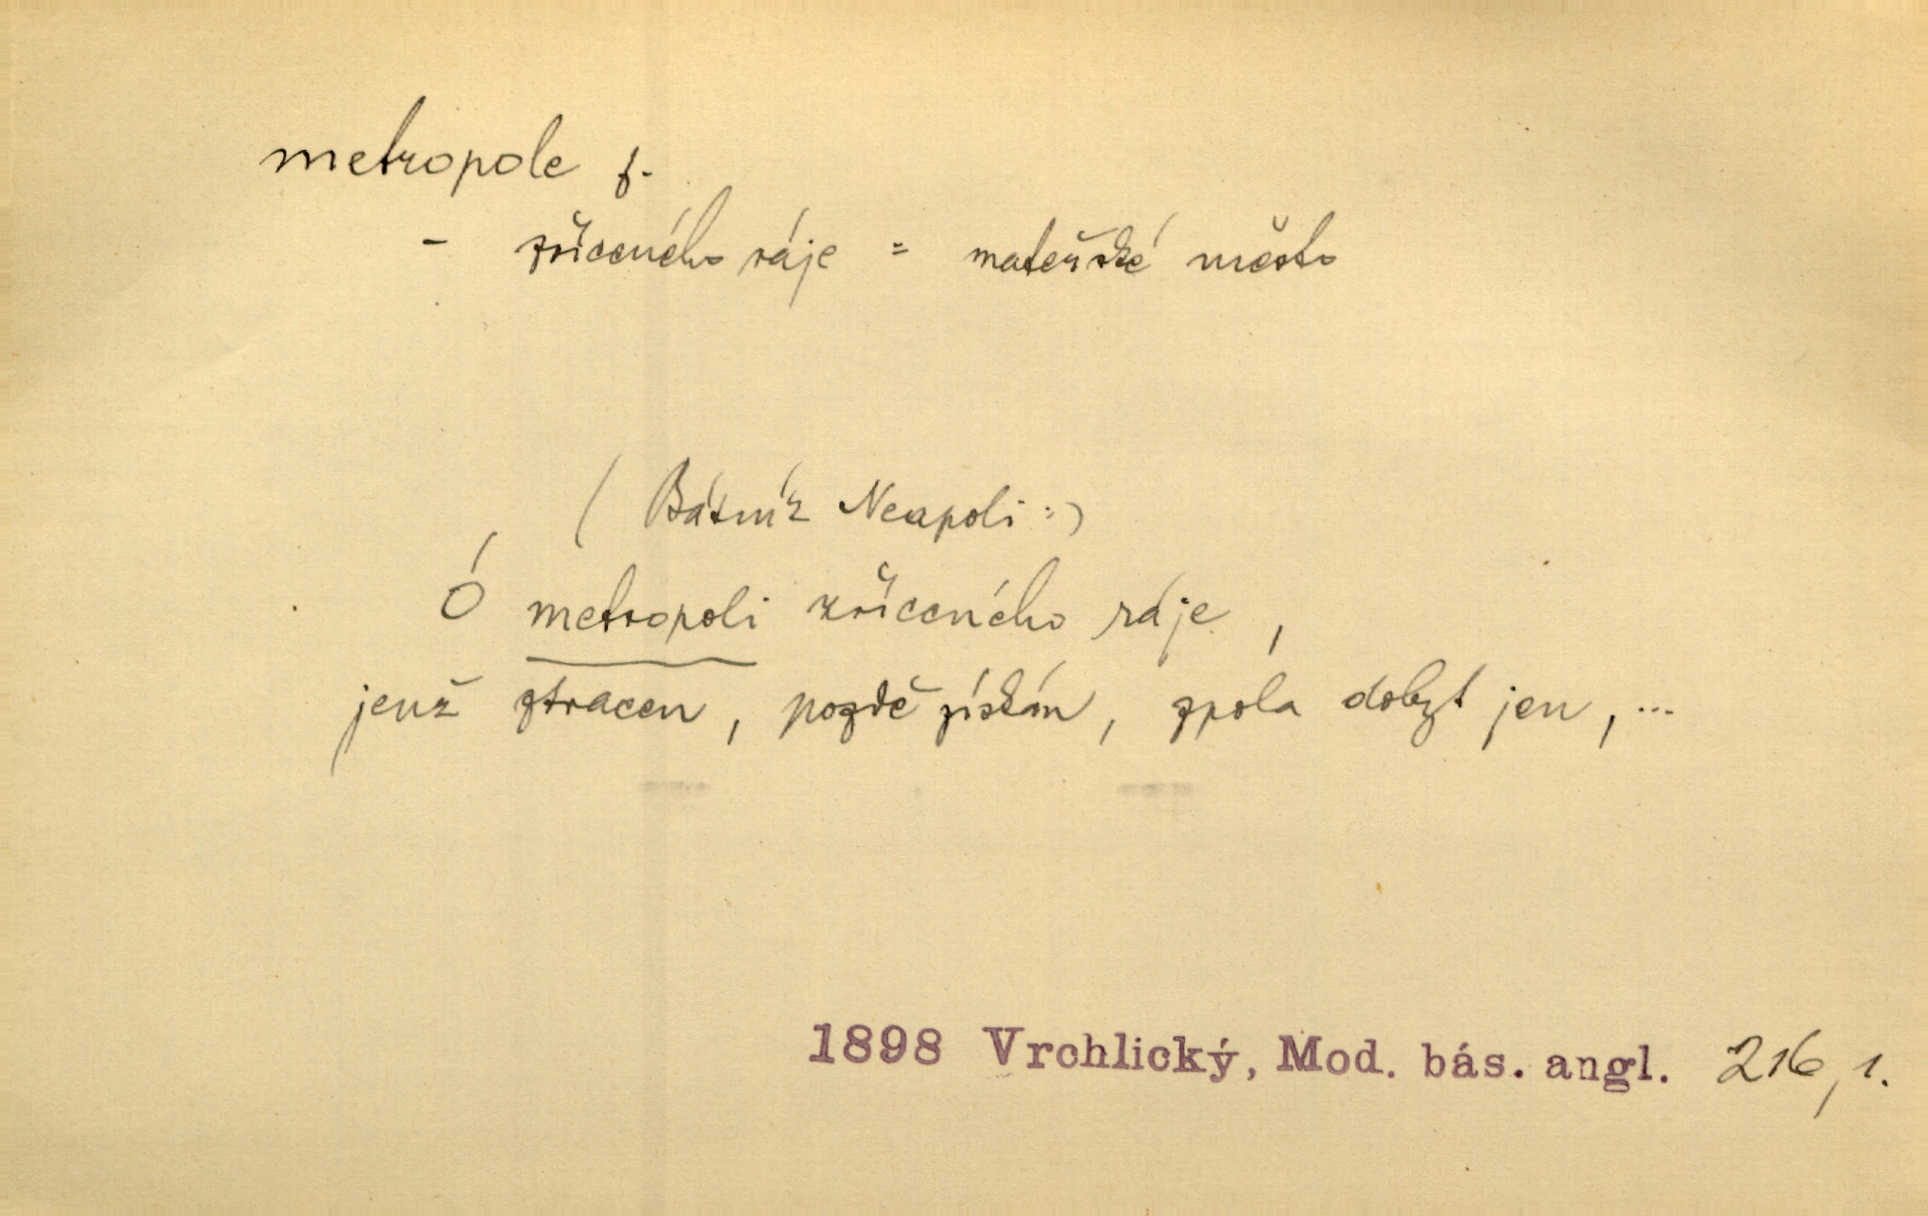 metropole f.
- zříceného ráje = mateřské město
( Básník Neapoli :)
Ó metropoli zříceného ráje ,
jenž ztracen , pozdě získán , zpola dobyt jen , ...
1898 Vrchlický, Mod. bás. angl. 216, 1.